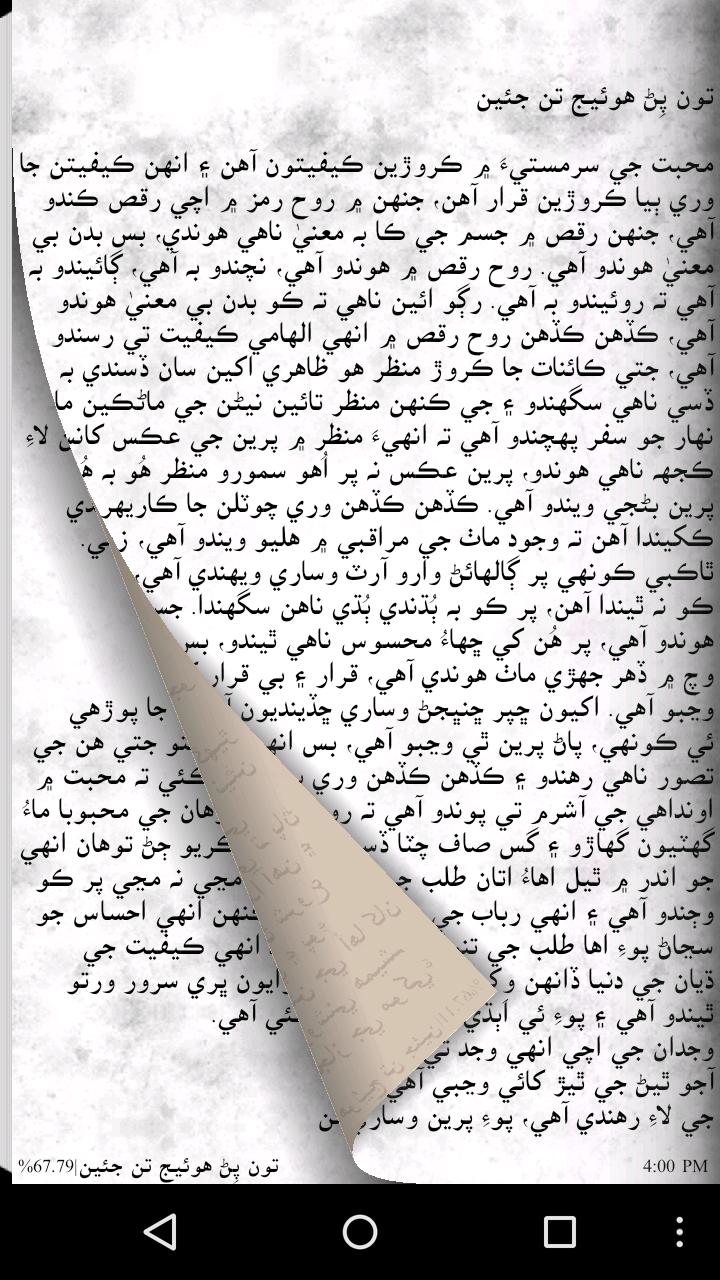 تون پِڻ هوئيج تن جئين
محبت جي سرمستيءَ ۾ ڪروڙين ڪيفيتون آهن ۽ انهن ڪيفيتن جا
وري ٻيا ڪروڙين قرار آهن، جنهن ۾ روح رمز ۾ اچي رقص ڪندو
آهي، جنهن رقص ۾ جسم جي ڪا به معنيٰ ناهي هوندي، بس بدن بي
معنيٰ هوندو آهي. روح رقص ۾ هوندو آهي، نچندو به آهي، ڳائيندو به
آهي ته روئيندو به آهي. رڳو ائين ناهي ته ڪو بدن بي معنيٰ هوندو
آهي، ڪڏهن ڪڏهن روح رقص ۾ انهي الهامي ڪيفيت تي رسندو
آهي، جتي ڪائنات جا ڪروڙ منظر هو ظاهري اکين سان ڏسندي به
ڏسي ناهي سگهندو ۽ جي ڪنهن منظر تائين نيڻن جي ماڻڪين ما
نهار جو سفر پهچندو آهي ته انهيءَ منظر ۾ پرين جي عڪس کانس لاءِ
ڪجهه ناهي هوندو، پرين عڪس نه پر اُهو سمورو منظر هُو به هُ
پرين بڻجي ويندو آهي. ڪڏهن ڪڏهن وري چوٽلن جا ڪاريهر
ڪڪيندا آهن ته وجود ماٺ جي مراقبي ۾ هليو ويندو آهي،
ٿاڪبي ڪونهي پر ڳالهائڻ وارو آرٽ وساري ويهندي آهي،
ڪو نه ٿيندا آهن، پر ڪو به ٻُڌندي ٻُڌي ناهن سگهندا.
هوندو آهي، پر هُن کي ڇهاءُ محسوس ناهي ٿيندو، بس
وچ ۾ ڏهر جهڙي ماٺ هوندي آهي، قرار ۽ بي قرار
وڃبو آهي. اکيون ڇپر ڇنڀڻ وساري ڇڏينديون جا پوڙهي
ئي ڪونهي، پاڻ پرين ٿي وڃبو آهي، بس جتي هن جي
تصور ناهي رهندو ۽ ڪڏهن ڪڏهن وري ته محبت ۾
اونداهي جي آشرم تي پوندو آهي ته جي محبوبا ماءُ
گهٽيون گهاڙو ۽ گس صاف چٽا ڪريو ڄڻ توهان انهي
جو اندر ۾ ٿيل اهاءُ اتان طلب مڃي نه مڃي پر ڪو
وڄندو آهي ۽ انهي رباب جي انهي احساس جو
سڃاڻ پوءِ اها طلب جي انهي ڪيفيت جي
ڌيان جي دنيا ڏانهن ڀري سرور ورتو
ٿيندو آهي ۽ پوءِ ئي آهي.
وجدان جي اچي انهي وجد
آجو ٿيڻ جي ٿيڙ کائي وڃبي
جي لاءِ رهندي آهي، پوءِ پرين
%67.79|تون پِڻ هوئيج تن جئين
4:00 PM